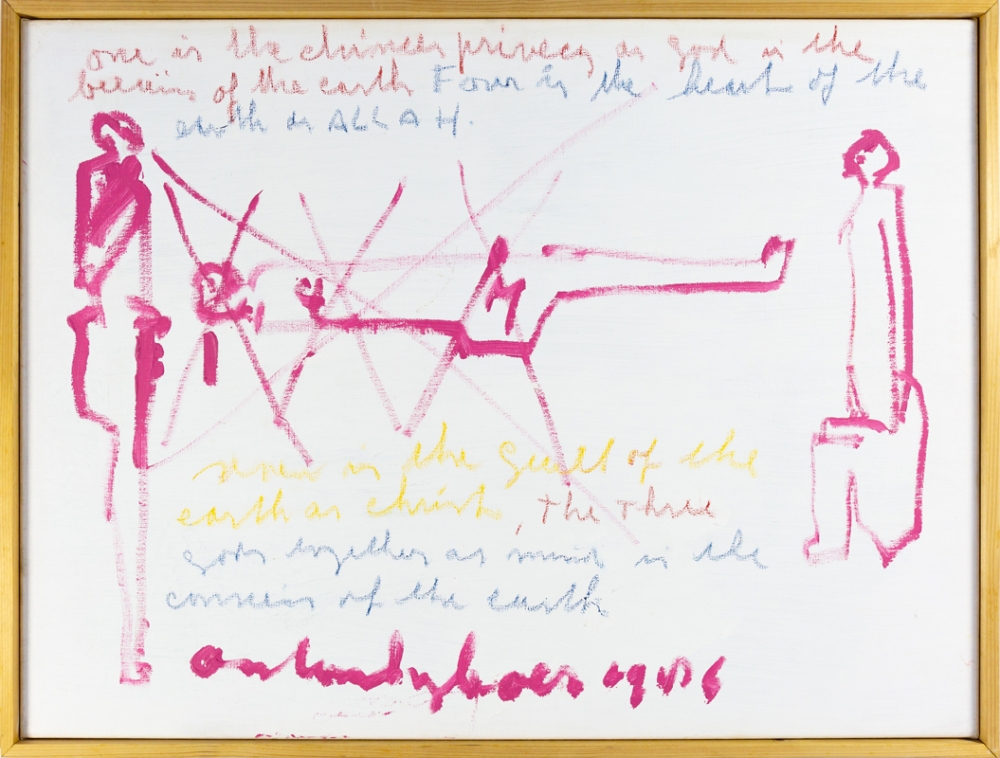 one is the chinees privecy as god is the
of the earth Four is the heart of the
earth as ALLAH.
seven is the guilt of the
earth as christ, the three
gods together as mind is the
of the earth